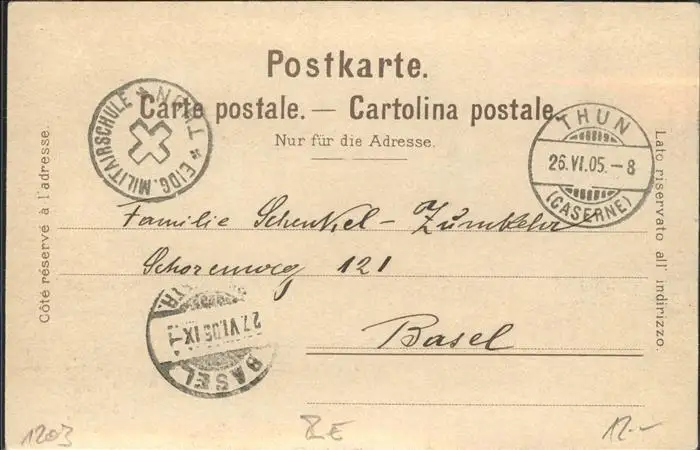 Postkarte.
Carte postale. — Cartolina postale.
Nur für die Adresse.
Côté réservé à l'adresse.
Lato riservato all' indirizzo.
EIDG. MILITAIRSCHULE * THUN *
THUN
26.VI.05.-8
(CASERNE)
Familie Schenkel - Zumkehr
Schorenweg 121
Basel
27.VI.05.IX-
BASEL
1203
12.-